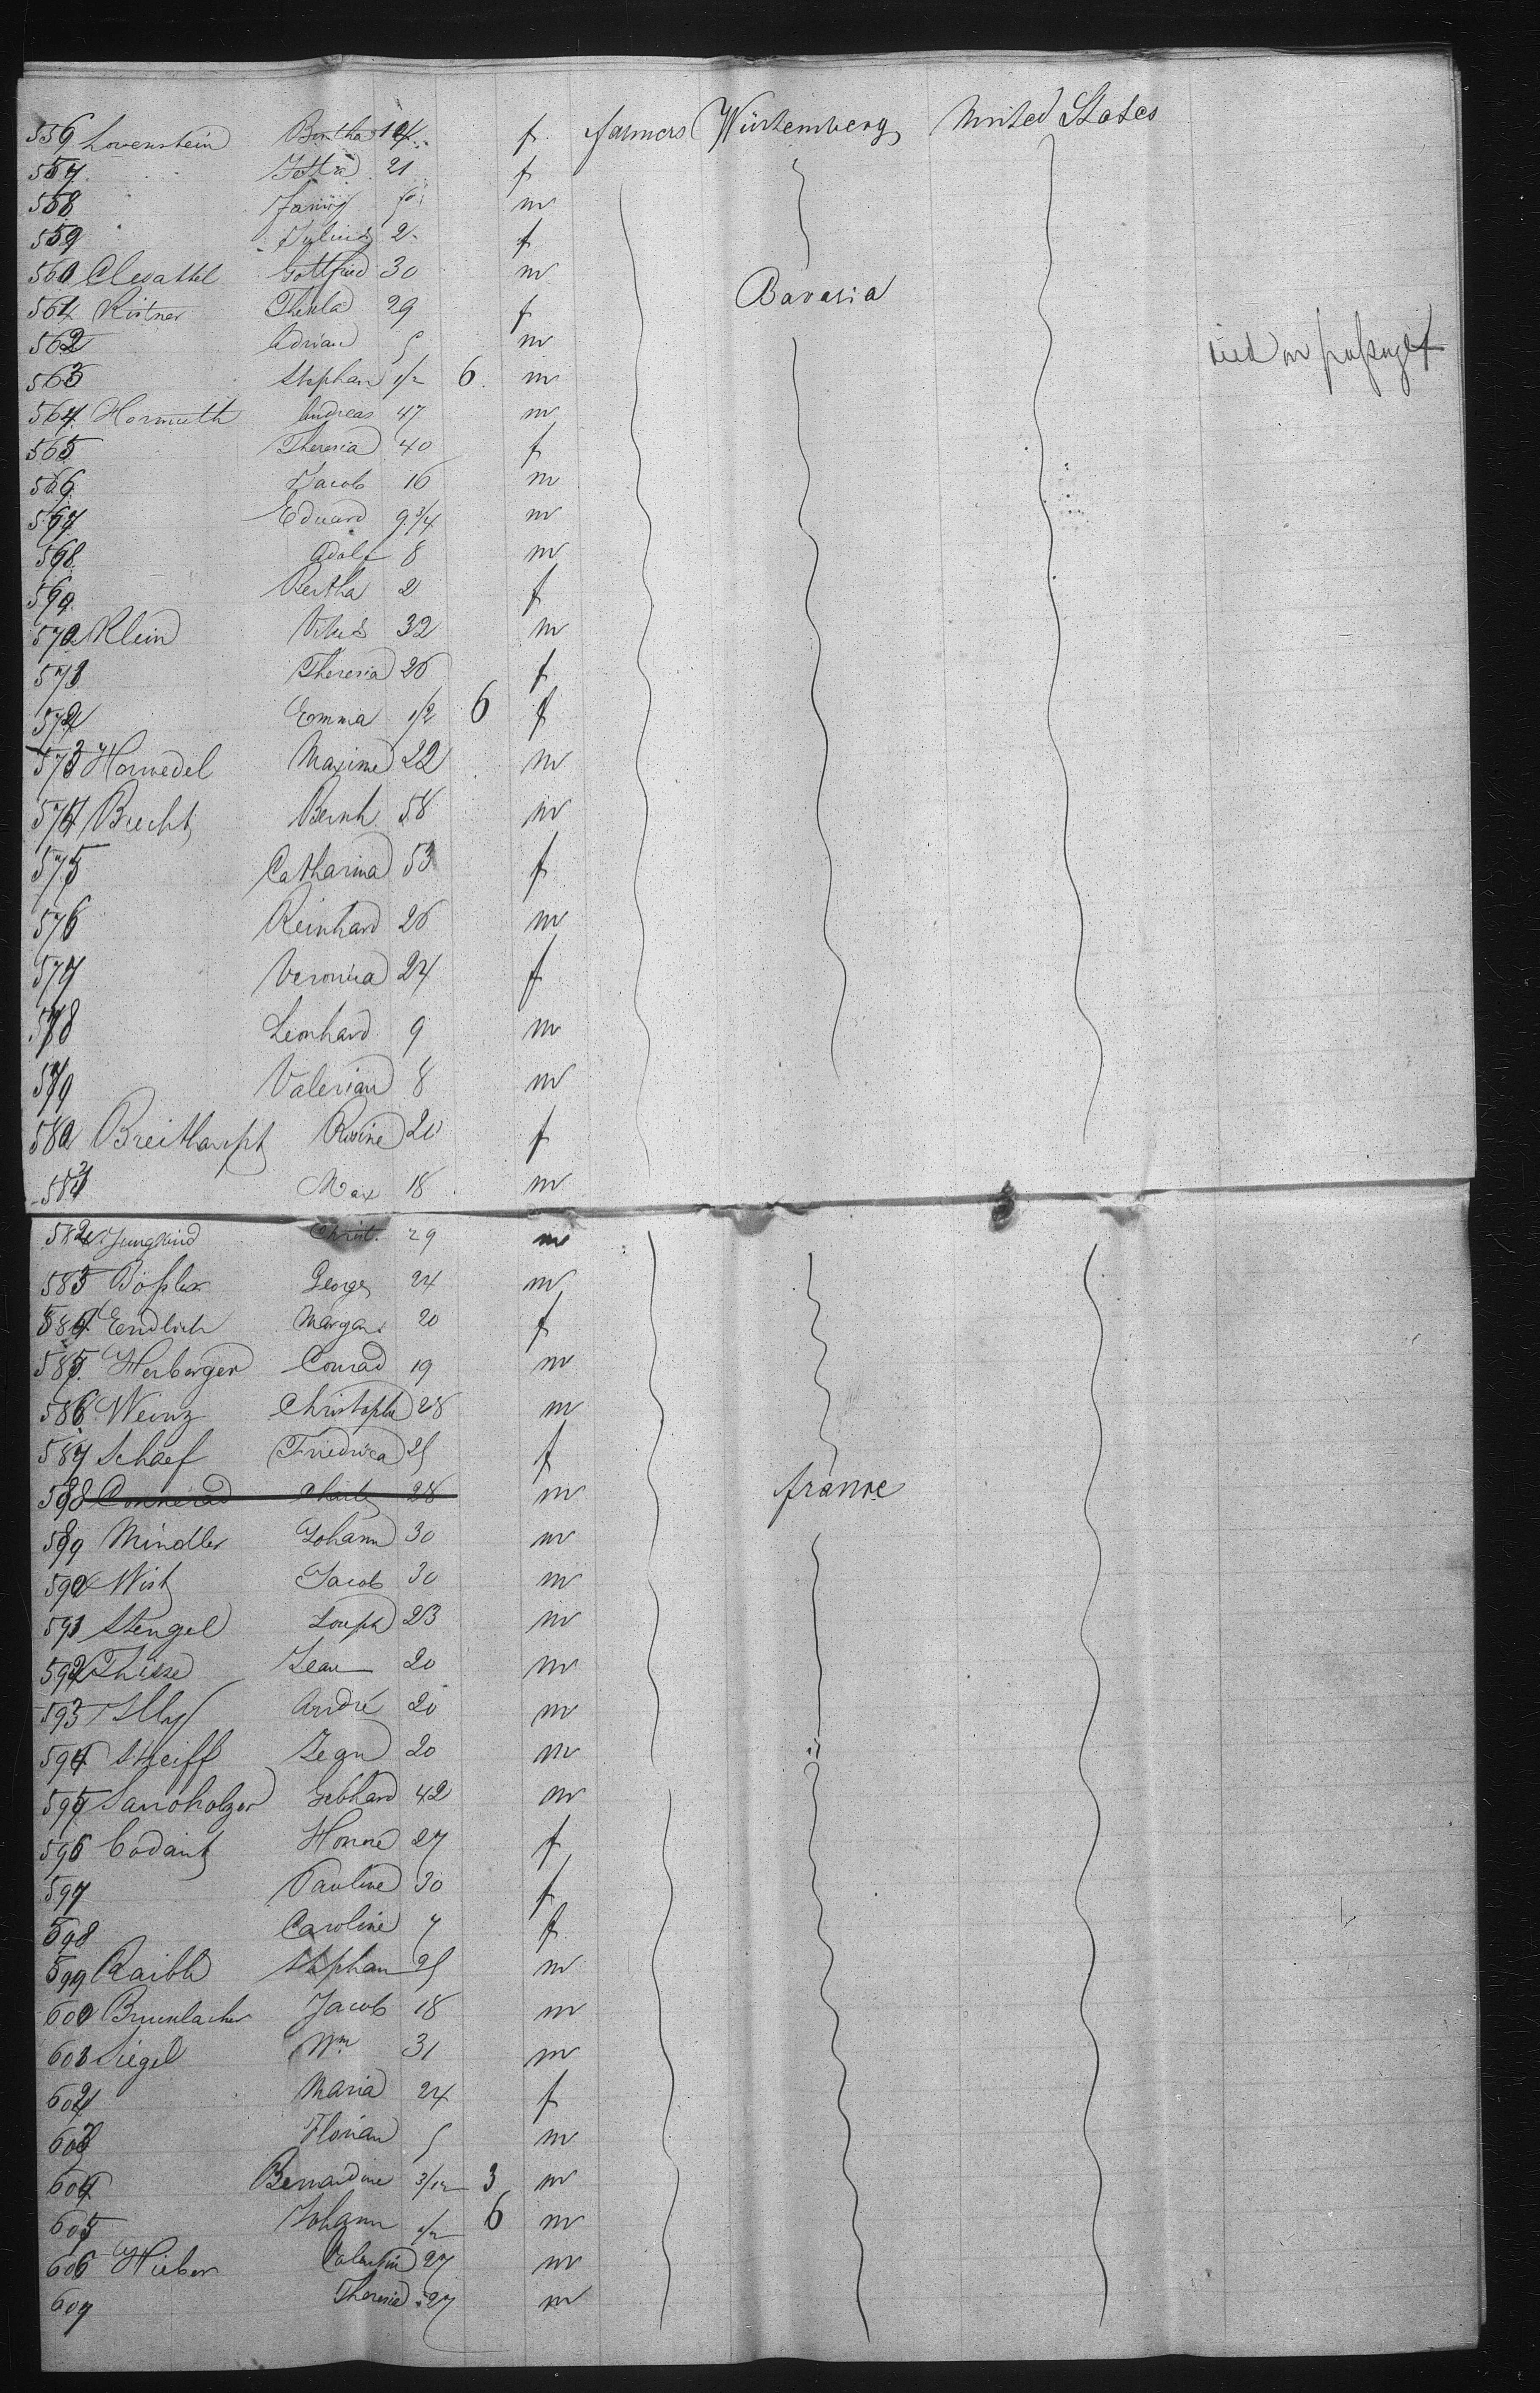 556 Lovenstein Bertha f farmers Würtemberg United States
557 Jetta 21 f
558 Fanny m
559 Julius 2 f
560 Gottfried 30 m
561 Kistner Thekla 29 f Bavaria
562 Adrian 5 m
563 Stephan 1/2 6 m died on passage
564 Hormuth Andreas 47 m
565 Theresia 40 f
566 Jacob 16 m
567 Eduard 9 3/4 m
568 Adolf 8 m
569 Bertha 2 f
570 Klein 32 m
571 Theresia 26 f
572 Emma 1/2 6 f
573 Hornedel Maxime 22 m
574 Brecht Bernh 58 m
575 Catharina 53 f
576 Reinhard 26 m
577 Veronica 24 f
578 Leonhard 9 m
579 Valerian 8 m
580 Breithaupt Rosine 20 f
581 Max 18 m
582 Jungkind Christ. 29 m
583 George 24 m
584 Endlich Margar 20 f
585 Herberger Conrad 19 m
586 Weinz Christoph 28 m
587 Schaef Friedrica 25 f
588 Connerad Charles 28 m France
589 Mindler Johann 30 m
590 Wist Jacob 30 m
591 Stengel Joseph 23 m
592 Thisse Jean 20 m
593 Illy André 20 m
594 Streiff Jean 20 m
595 Sandholzer Gebhard 42 m
596 Codant 27 f
597 Pauline 30 f
598 Caroline 7 f
599 Raible Stephan 25 m
600 Jacob 18 m
601 Siegel Wm 31 m
602 Maria 24 f
603 Florian 5 m
604 Bernardine 3/12 3 m
605 Johann 1/2 6 m
606 Hieber Valentin 27 m
607 Theresia 27 m